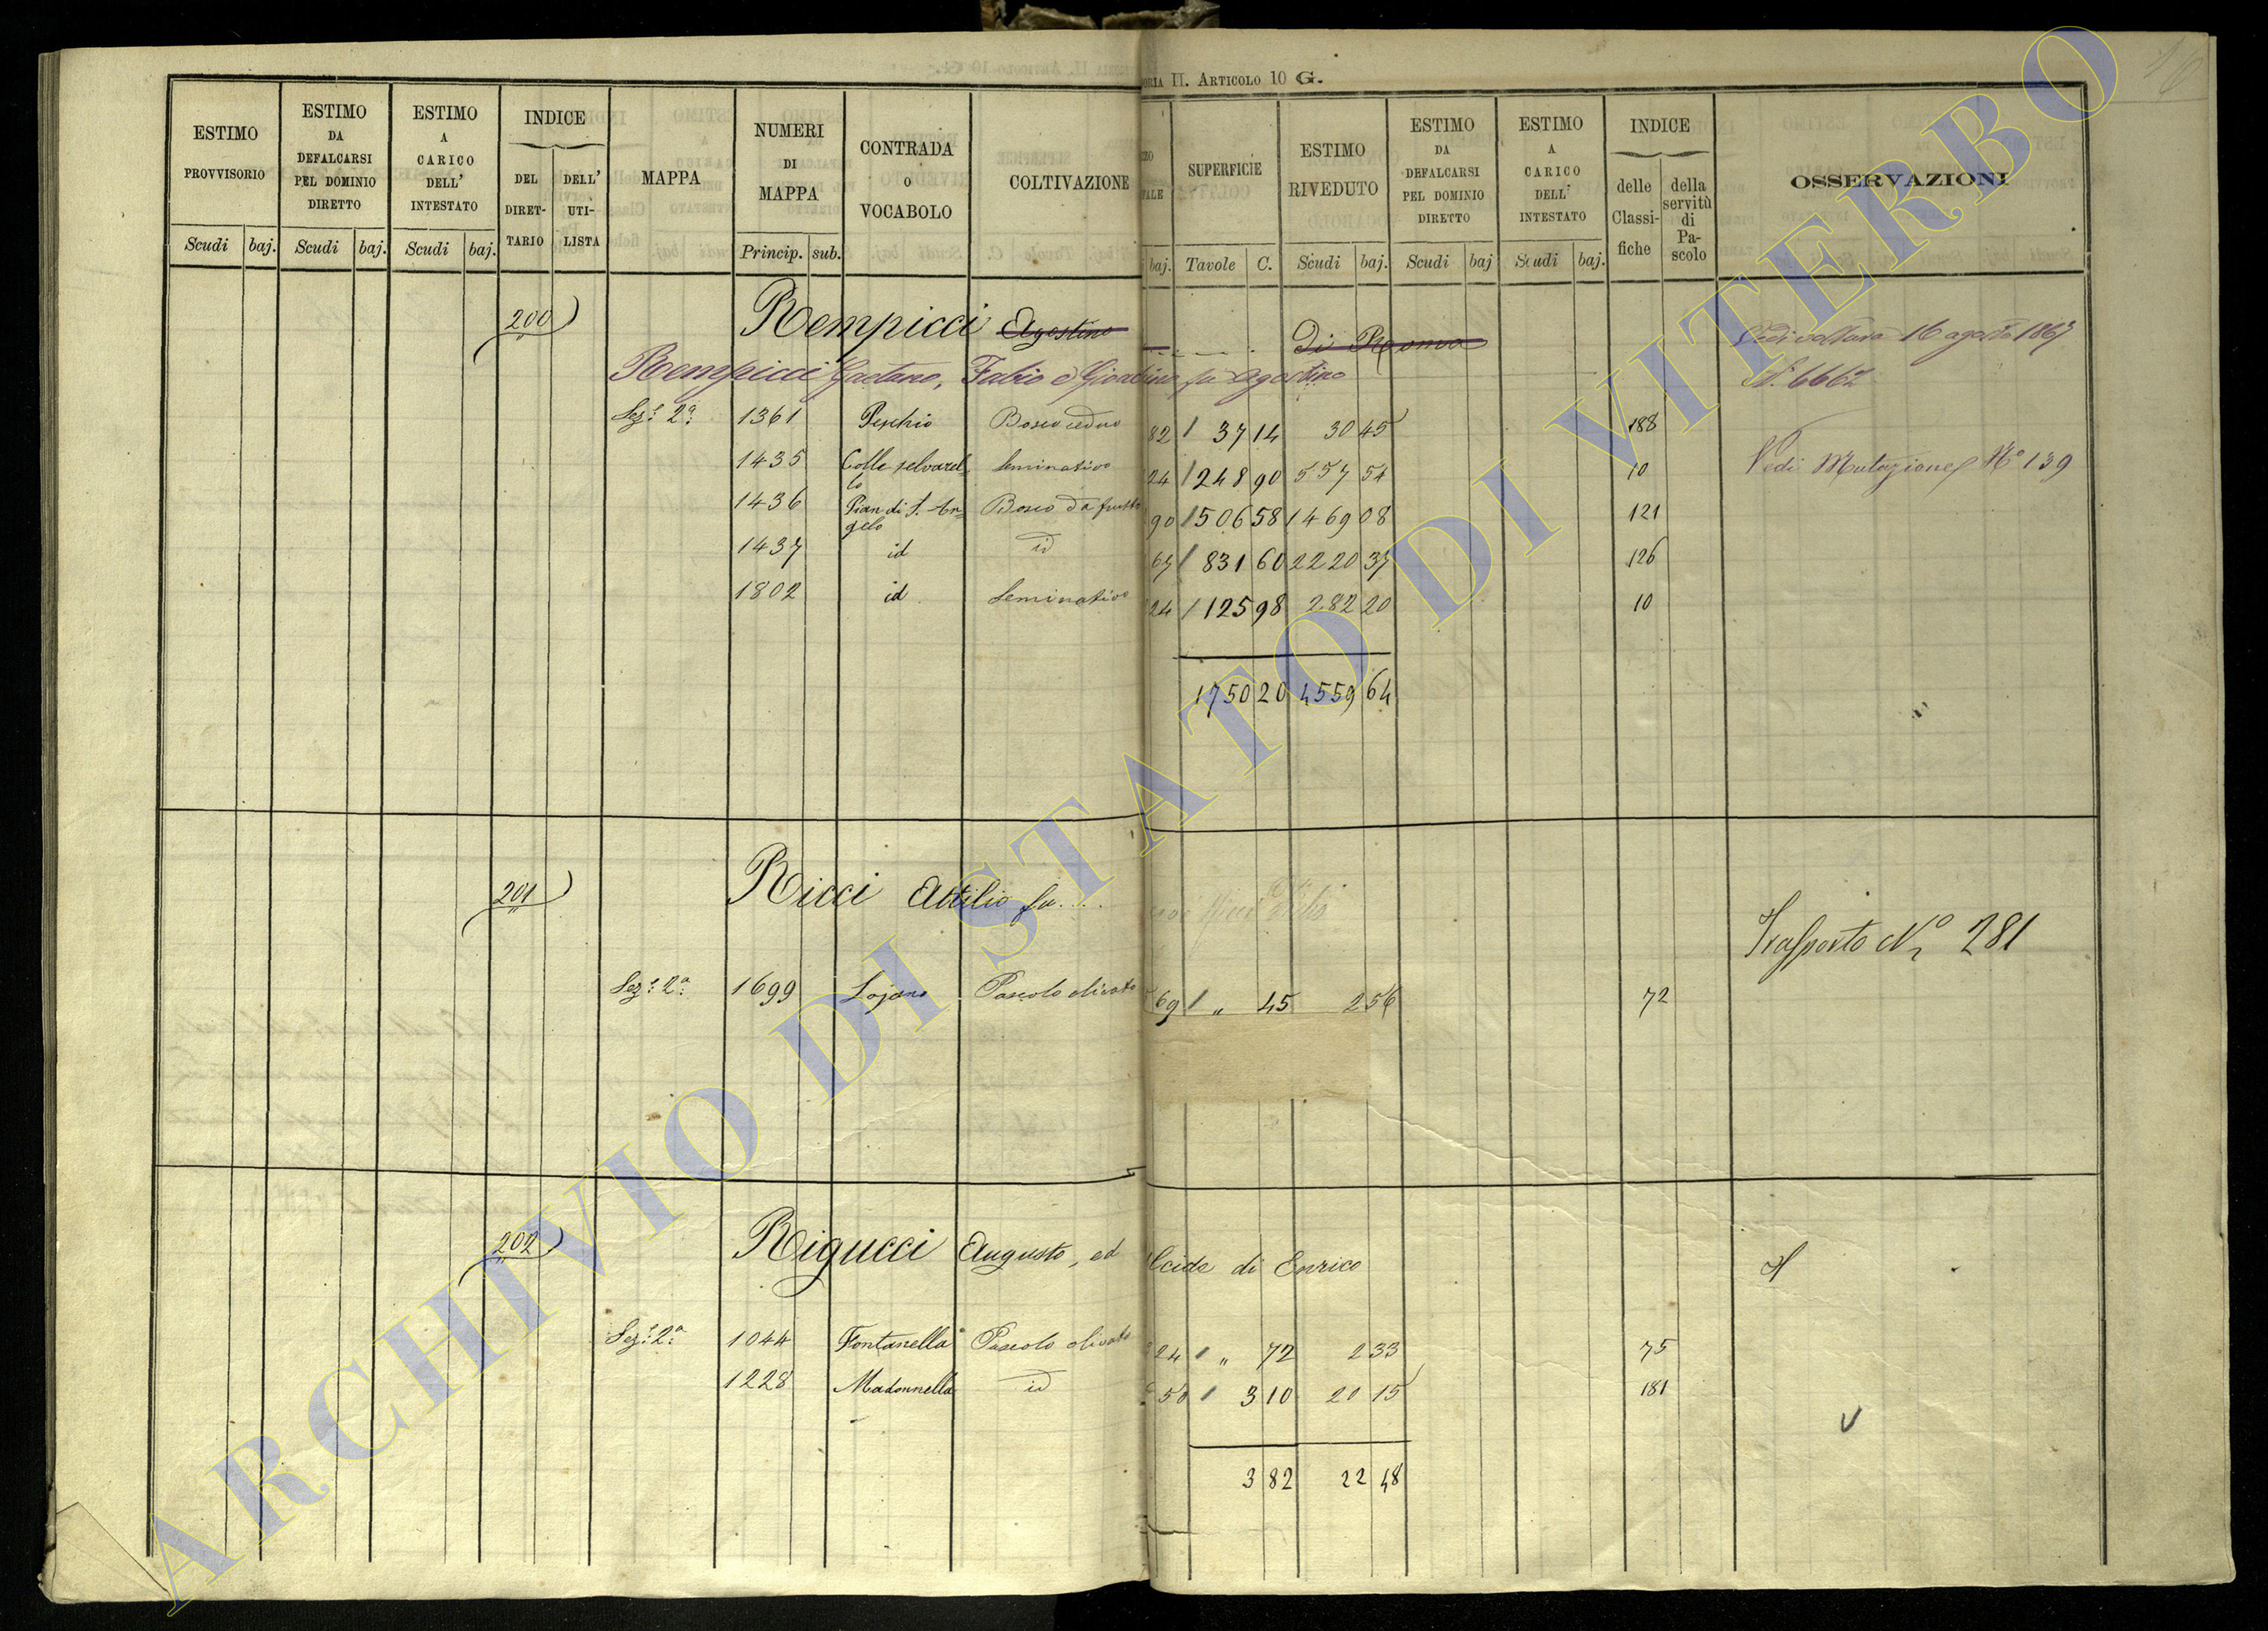 ORIA II. ARTICOLO 10 G.
16
ESTIMO PROVVISORIO
ESTIMO DA DEFALCARSI PEL DOMINIO DIRETTO
ESTIMO A CARICO DELL' INTESTATO
INDICE
DEL DIRETTARIO
DELL' UTILISTA
MAPPA
NUMERI DI MAPPA
CONTRADA O VOCABOLO
COLTIVAZIONE
SUPERFICIE
ESTIMO RIVEDUTO
ESTIMO DA DEFALCARSI PEL DOMINIO DIRETTO
ESTIMO A CARICO DELL' INTESTATO
INDICE
delle Classifiche
della servitù di Pascolo
OSSERVAZIONI
Scudi baj. Scudi baj. Scudi baj. Princip. sub. baj. Tavole C. Scudi baj. Scudi baj Scudi baj.
200 Rempicci Agostino di Roma Vedi voltura 16 agosto 1867
Rempicci Gaetano, Fabio e fu Agostino N. 6662
Sez.e 2a 1361 Peschio Bosco ceduo 82 37 14 30 45 188
1435 Colle selvarello Seminativo 24 248 90 557 54 10 Vedi Mutazione No 139
1436 Pian di S. Angelo Bosco da frutto 90 506 58 1469 08 121
1437 id id 67 831 60 2220 37 126
1802 id Seminativo 24 125 98 282 20 10
1750 20 4559 64
201 Ricci Attilio fu....
Trasporto No 281
Sez.e 2a 1699 Lojano Pascolo olivato 69 " 45 2 56 72
202 Rigucci Augusto, ed lcide di Enrico
Sez.e 2a 1044 Fontanella Pascolo olivato 24 " 72 2 33 75
1228 Madonnella id 50 3 10 20 15 181
3 82 22 48
ARCHIVIO DI STATO DI VITERBO